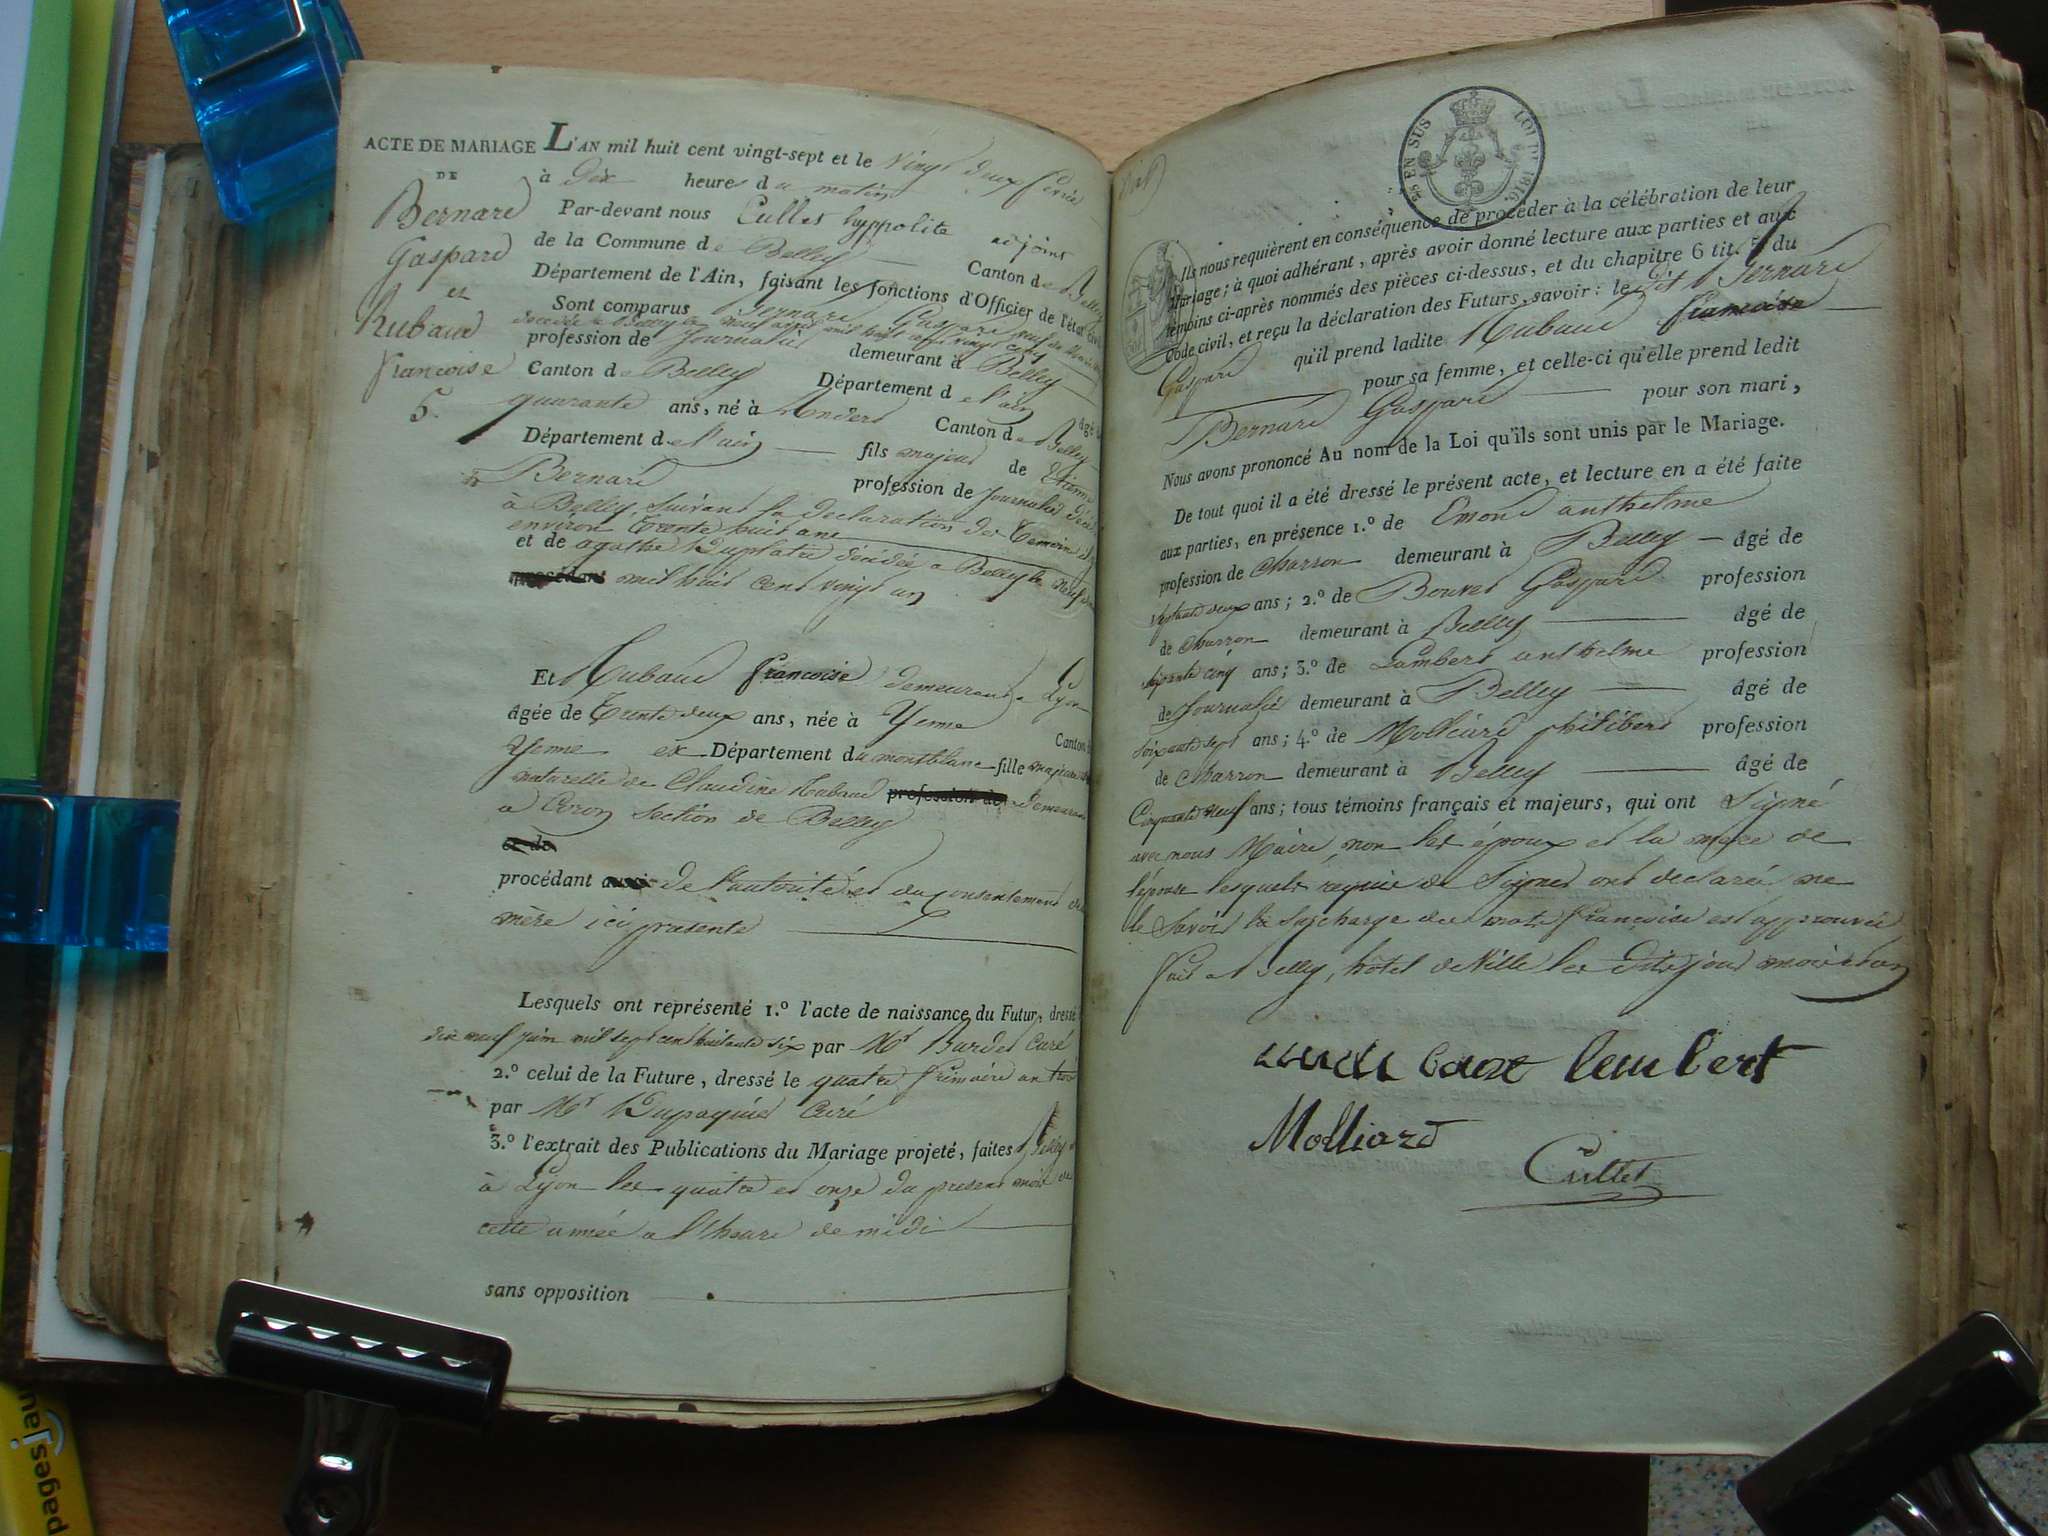 ACTE DE MARIAGE
DE
Bernard
Gaspard
et
Rubaud
francoise
5.
L'AN mil huit cent vingt-sept et le vingt deux fevrier
à Dix heures du matin
Par-devant nous Cullet hyppolite adjoint
de la Commune de Belley Canton de Belley
Département de l'Ain, faisant les fonctions d'Officier de l'état civil
Sont comparus Bernard Gaspard veuf de
décédée à Belley le neuf mil huit cent vingt cinq
profession de Journalier demeurant à Belley
Canton de Belley Département de l'ain âgé de
quarante ans, né à Andert Canton de Belley
Département de l'ain fils majeur de Etienne
Bernard profession de Journalier
à Belley, suivant la declaration des temoins
environ trente huit ans
et de agathe Duplatre décédée a Belley le neuf
procédant mil huit cent vingt un
Et Rubaud francoise demeurant a Lyon
âgée de trente deux ans, née à Yenne Canton
Yenne ex Département du montblanc fille majeure
naturelle de Claudine Rubaud profession de demeurant
a Coron section de Belley
et de
procédant de l'autorité et du consentement de
mère ici presente
Lesquels ont représenté 1.º l'acte de naissance du Futur, dressé
dix neuf juin mil sept cent huitante six par Mr Burdet Curé
2.º celui de la Future, dressé le quatre frimaire an trois
par Mr Dupaquier Curé
3.º l'extrait des Publications du Mariage projeté, faites Belley
à Lyon les quatre et onze du present mois de
cette année a l'heure de midi
sans opposition
25 EN SUS LOI DE 1816.
Ils nous requièrent en conséquence de procéder à la célébration de leur
Mariage; à quoi adhérant, après avoir donné lecture aux parties et aux
témoins ci-après nommés des pièces ci-dessus, et du chapitre 6 tit. 5 du
Code civil, et reçu la déclaration des Futurs, savoir: le dit Bernard
Gaspard qu'il prend ladite Rubaud francoise
pour sa femme, et celle-ci qu'elle prend ledit
Bernard Gaspard pour son mari,
Nous avons prononcé Au nom de la Loi qu'ils sont unis par le Mariage.
De tout quoi il a été dressé le présent acte, et lecture en a été faite
aux parties, en présence 1.º de Emond anthelme
profession de charron demeurant à Belley âgé de
ans; 2.º de Bouvet Gaspard profession
de charron demeurant à Belley âgé de
soixante cinq ans; 3.º de Lambert anthelme profession
de Journalier demeurant à Belley âgé de
soixante sept ans; 4.º de Molliard philibert profession
de charron demeurant à Belley âgé de
Cinquante neuf ans; tous témoins français et majeurs, qui ont signé
avec nous Maire, non les époux et la mere de
l'épouse lesquels requis de signer ont declaré ne
le savoir la surcharge du mot francoise est approuvée
fait a Belley, hôtel de Ville les dits jour mois et an
lambert
Molliard
Cullet
pages jau